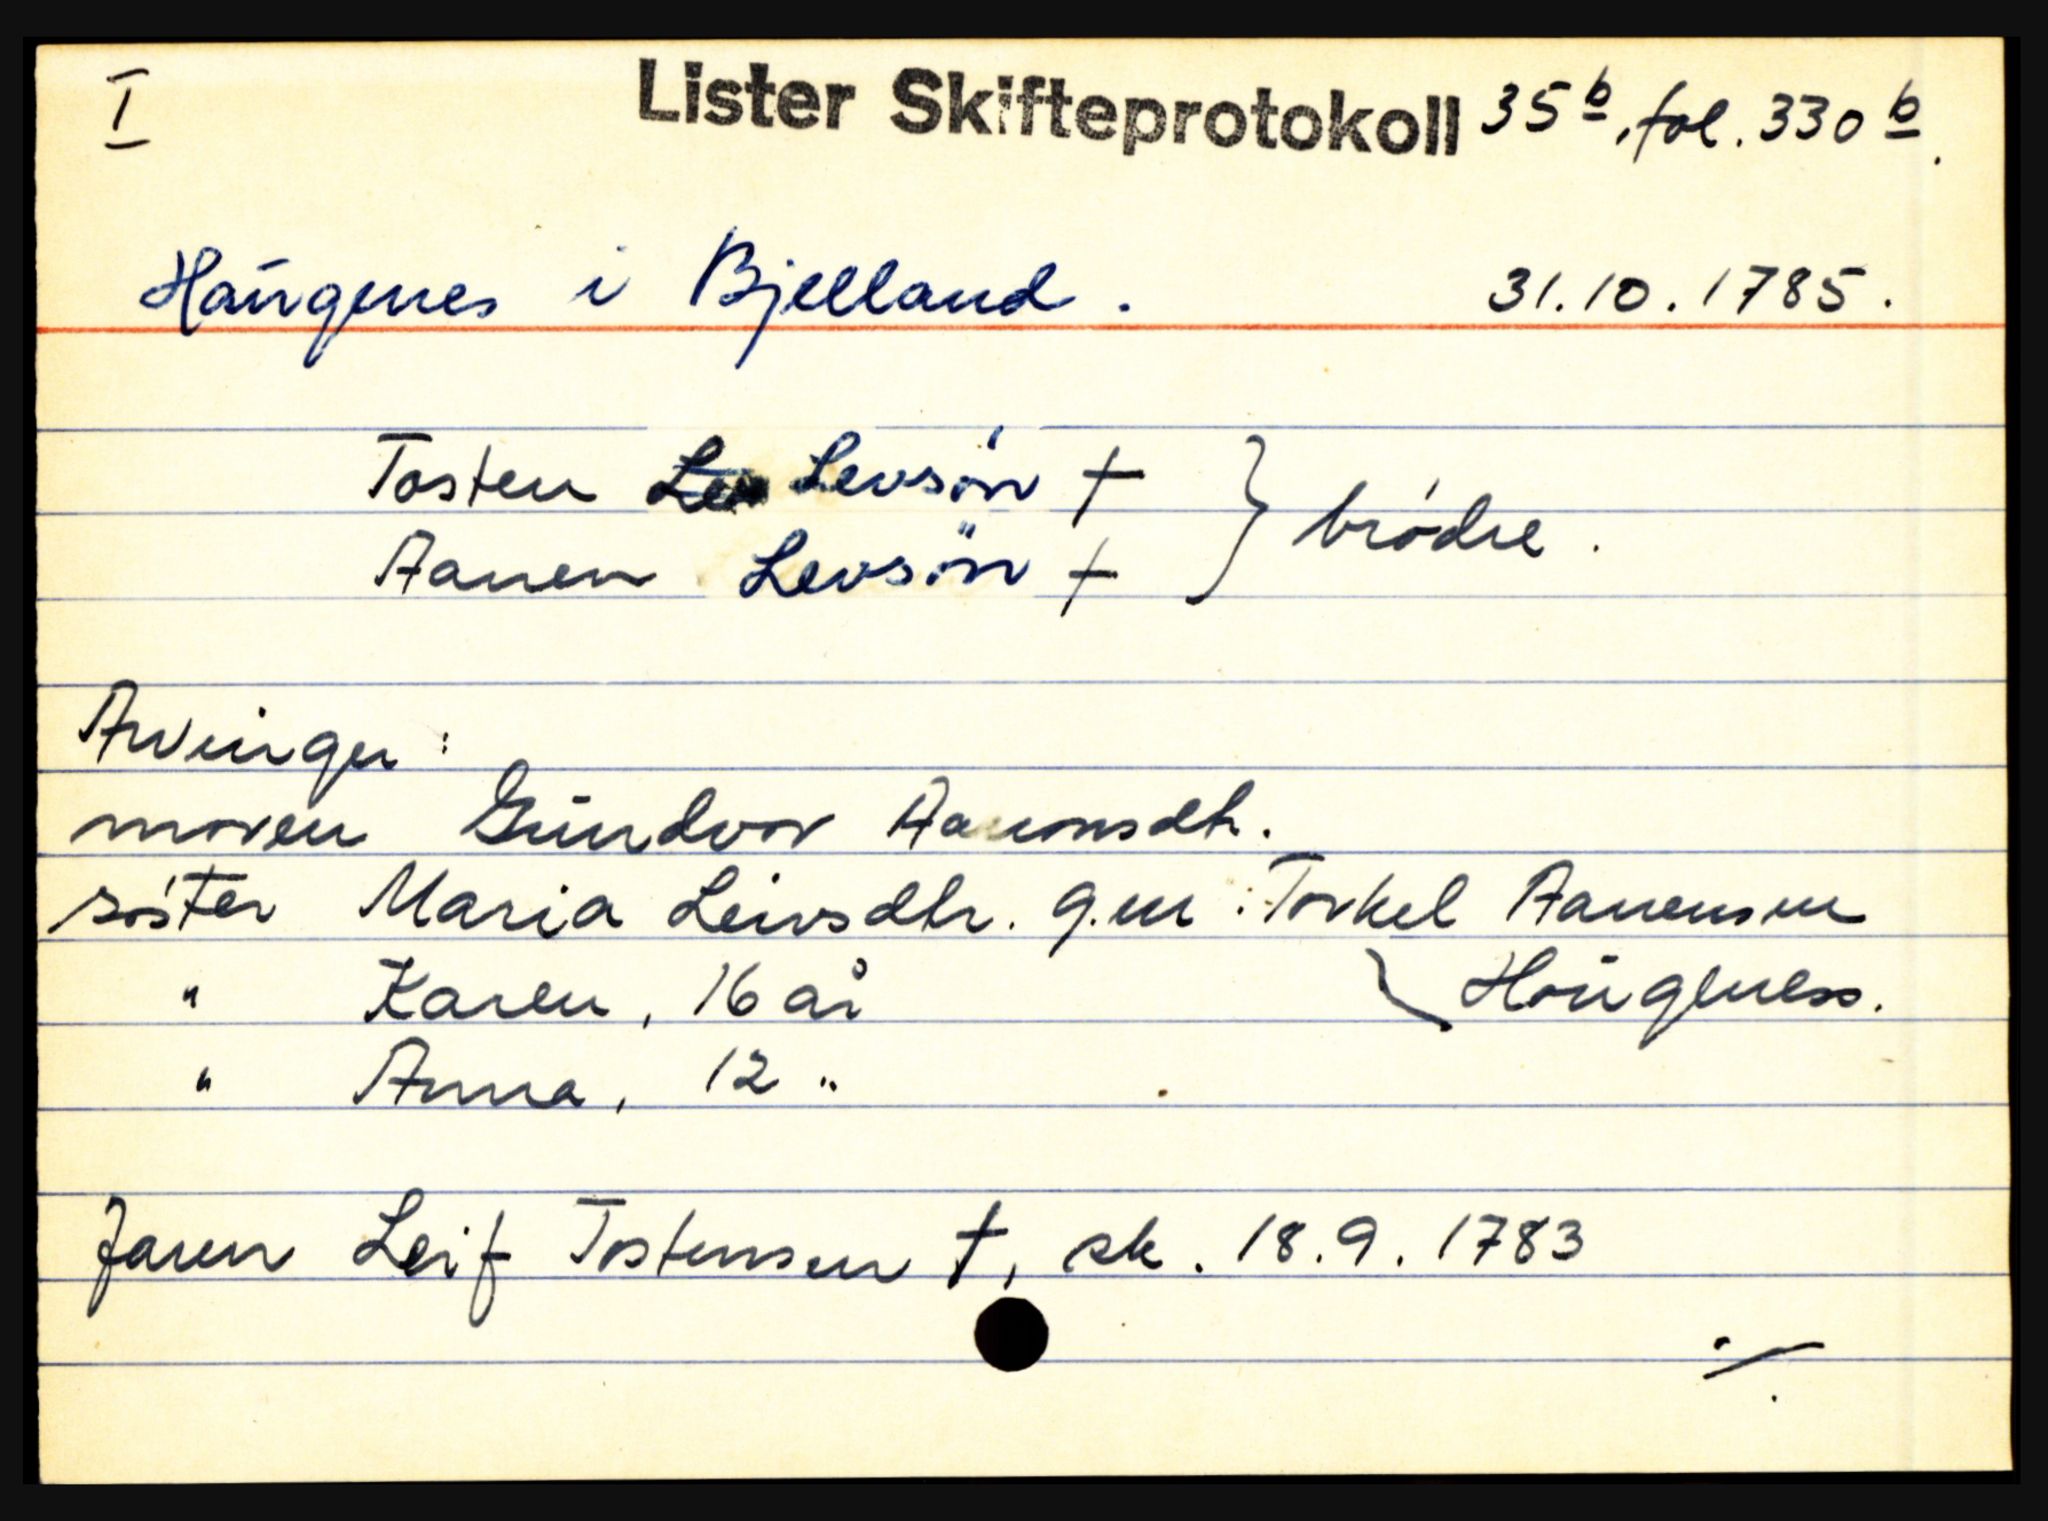 I Lister Skifteprotokoll 35b, fol. 330b.
Haugenes i Bjelland. 31.10.1785.
Tosten Levsøn †
Aanen Levsön † } brødre.
Arvinger:
moren Gundvor Aanonsdtr.
søster Maria Leivsdtr. g.m. Torkel Aanensen
" Karen, 16 år Hougeness.
" Anna, 12 "
Faren Leif Tostensen †, sk. 18.9.1783